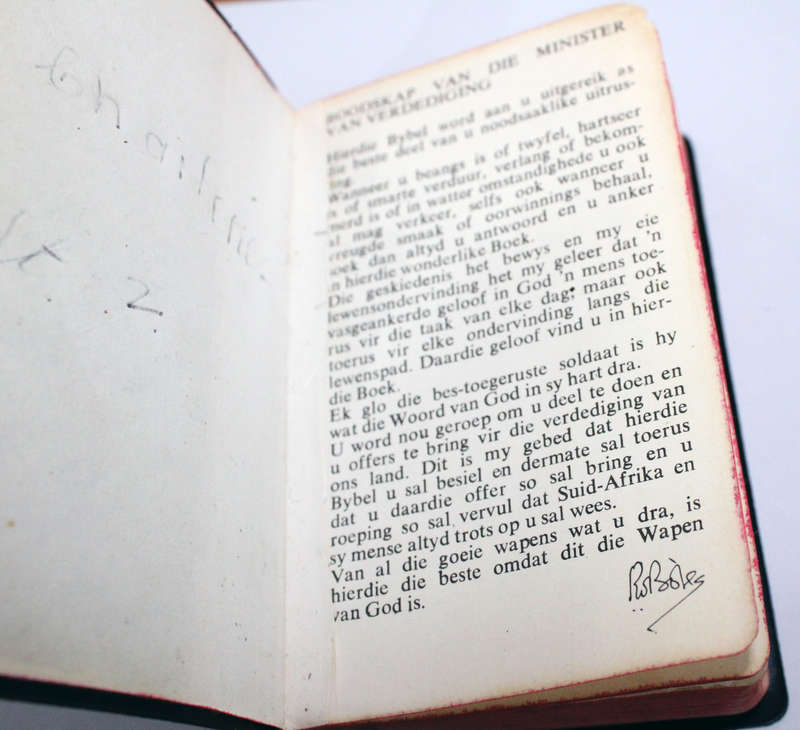 2
BOODSKAP VAN DIE MINISTER
VAN VERDEDIGING
Hierdie Bybel word aan u uitgereik as
die beste deel van u noodsaaklike uitrus-
ting.
Wanneer u beangs is of twyfel, hartseer
is of smarte verduur, verlang of bekom-
merd is of in watter omstandighede u ook
al mag verkeer, selfs ook wanneer u
vreugde smaak of oorwinnings behaal,
soek dan altyd u antwoord en u anker
in hierdie wonderlike Boek.
Die geskiedenis het bewys en my eie
lewensondervinding het my geleer dat 'n
vasgeankerde geloof in God 'n mens toe-
rus vir die taak van elke dag; maar ook
toerus vir elke ondervinding langs die
lewenspad. Daardie geloof vind u in hier-
die Boek.
Ek glo die bes-toegeruste soldaat is hy
wat die Woord van God in sy hart dra.
U word nou geroep om u deel te doen en
u offers te bring vir die verdediging van
ons land. Dit is my gebed dat hierdie
Bybel u sal besiel en dermate sal toerus
dat u daardie offer so sal bring en u
roeping so sal vervul dat Suid-Afrika en
sy mense altyd trots op u sal wees.
Van al die goeie wapens wat u dra, is
hierdie die beste omdat dit die Wapen
van God is.